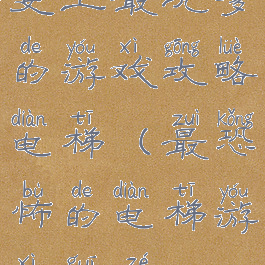 de yóu xì gōng lüè
的游戏攻略
diàn tī zuì kǒng
电梯(最恐
bù de diàn tī yóu
怖的电梯游